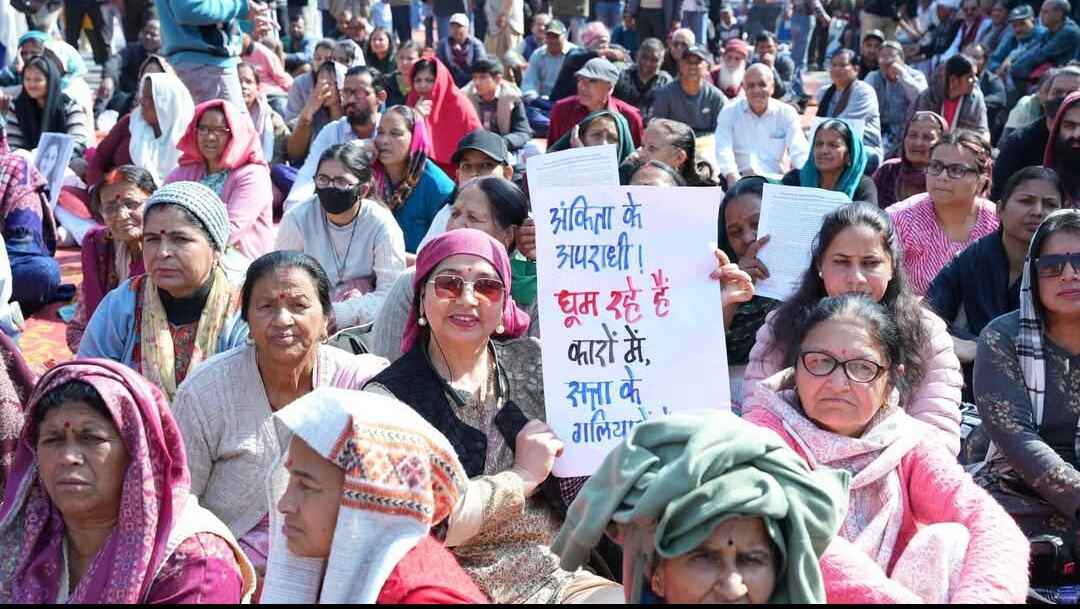 अंकिता के
अपराधी!
घूम रहे हैं
कारों में,
सत्ता के